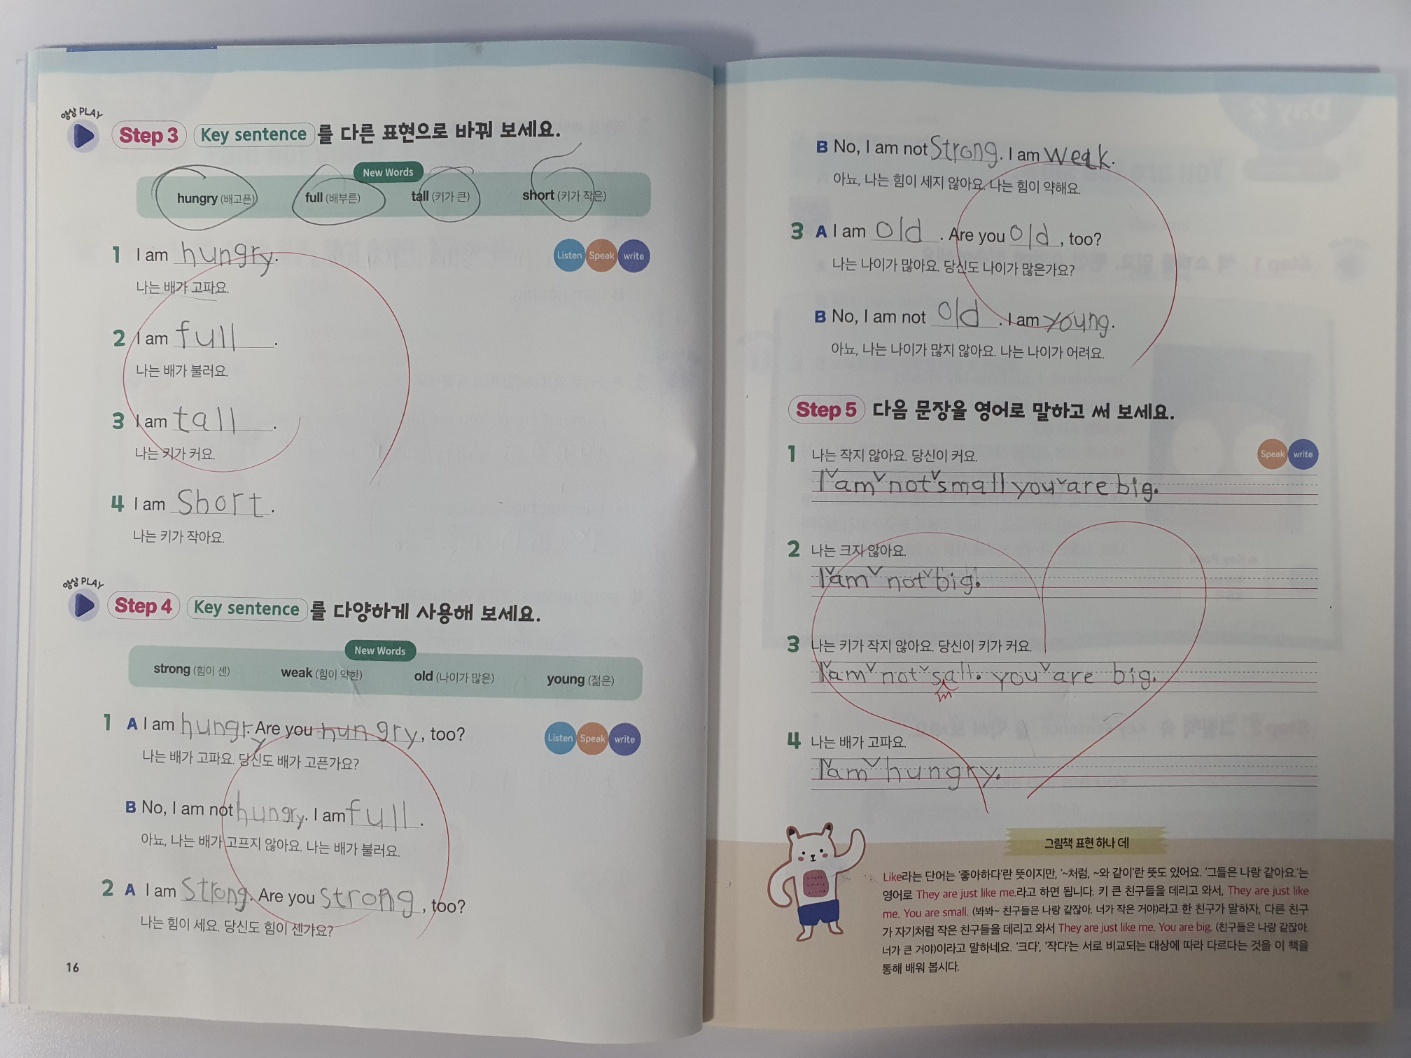 영상 PLAY
Step 3 Key sentence 를 다른 표현으로 바꿔 보세요.
New Words
hungry (배고픈) full (배부른) tall (키가 큰) short (키가 작은)
Listen Speak write
1 I am hungry.
나는 배가 고파요.
2 I am full.
나는 배가 불러요.
3 I am tall.
나는 키가 커요.
4 I am short.
나는 키가 작아요.
영상 PLAY
Step 4 Key sentence 를 다양하게 사용해 보세요.
New Words
strong (힘이 센) weak (힘이 약한) old (나이가 많은) young (젊은)
Listen Speak write
1 A I am hungry. Are you hungry, too?
나는 배가 고파요. 당신도 배가 고픈가요?
B No, I am not hungry. I am full.
아뇨, 나는 배가 고프지 않아요. 나는 배가 불러요.
2 A I am strong. Are you strong, too?
나는 힘이 세요. 당신도 힘이 센가요?
16
B No, I am not strong. I am weak.
아뇨, 나는 힘이 세지 않아요. 나는 힘이 약해요.
3 A I am old. Are you old, too?
나는 나이가 많아요. 당신도 나이가 많은가요?
B No, I am not old. I am young.
아뇨, 나는 나이가 많지 않아요. 나는 나이가 어려요.
Step 5 다음 문장을 영어로 말하고 써 보세요.
Speak write
1 나는 작지 않아요. 당신이 커요.
I am not small you are big.
2 나는 크지 않아요.
I am not big.
3 나는 키가 작지 않아요. 당신이 키가 커요.
I am not sall. you are big.
m
4 나는 배가 고파요.
I am hungry.
그림책 표현 하나 데
Like라는 단어는 '좋아하다'란 뜻이지만, '~처럼, ~와 같이'란 뜻도 있어요. '그들은 나랑 같아요.'는
영어로 They are just like me.라고 하면 됩니다. 키 큰 친구들을 데리고 와서, They are just like
me. You are small. (봐봐~ 친구들은 나랑 같잖아. 너가 작은 거야)라고 한 친구가 말하자, 다른 친구
가 자기처럼 작은 친구들을 데리고 와서 They are just like me. You are big. (친구들은 나랑 같잖아.
너가 큰 거야)이라고 말하네요. '크다', '작다'는 서로 비교되는 대상에 따라 다르다는 것을 이 책을
통해 배워 봅시다.